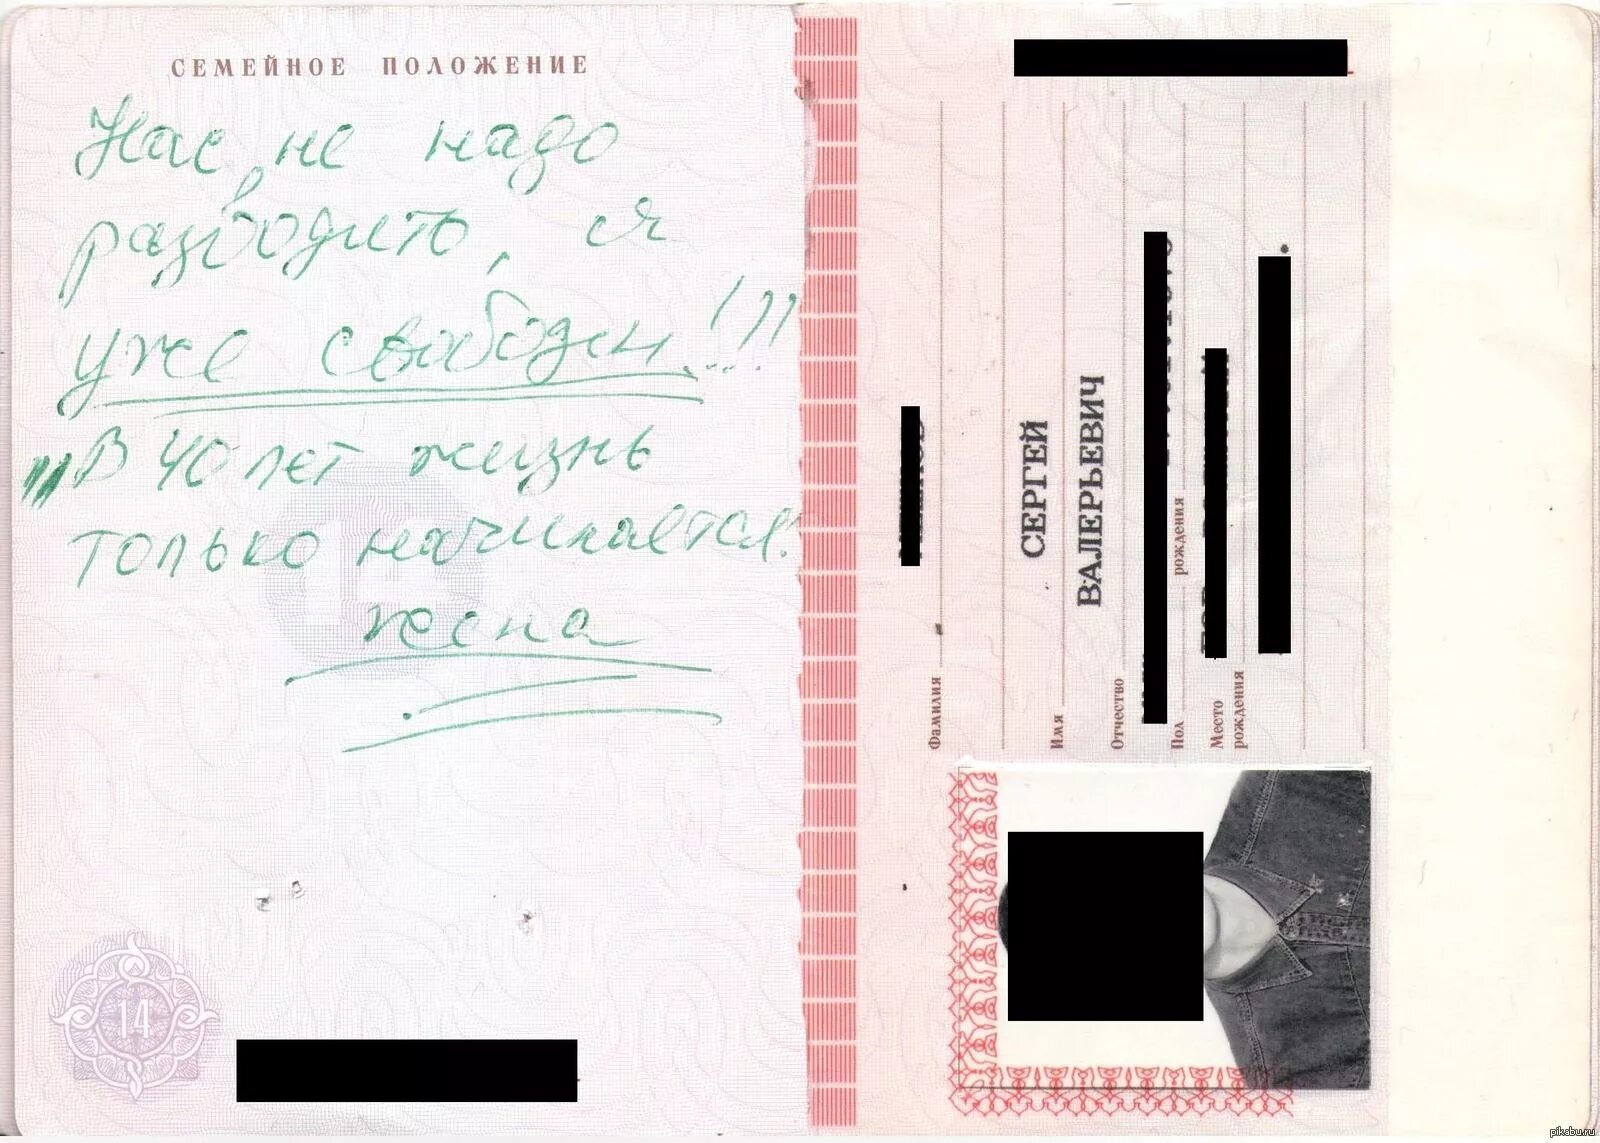 СЕМЕЙНОЕ ПОЛОЖЕНИЕ
Нас не надо
разводить, я
уже свободен!!!
"В 40 лет жизнь
только начинается!
жена
14
Фамилия
СЕРГЕЙ
Имя
ВАЛЕРЬЕВИЧ
Отчество
Пол
рождения
Место
рождения
pikabu.ru